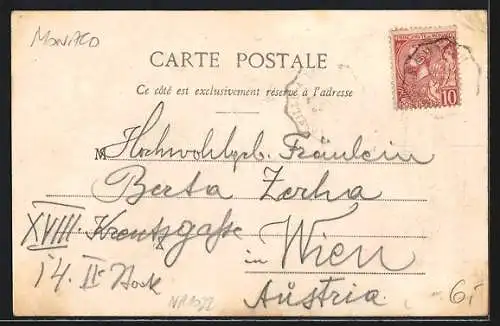 MONACO
CARTE POSTALE
Ce côté est exclusivement réservé à l'adresse
M Hochwohlgeb. Fräulein
Berta Zerha
XVIII. Kreutzgasse
14. IIr Stock
in Wien
Austria
6.-
10